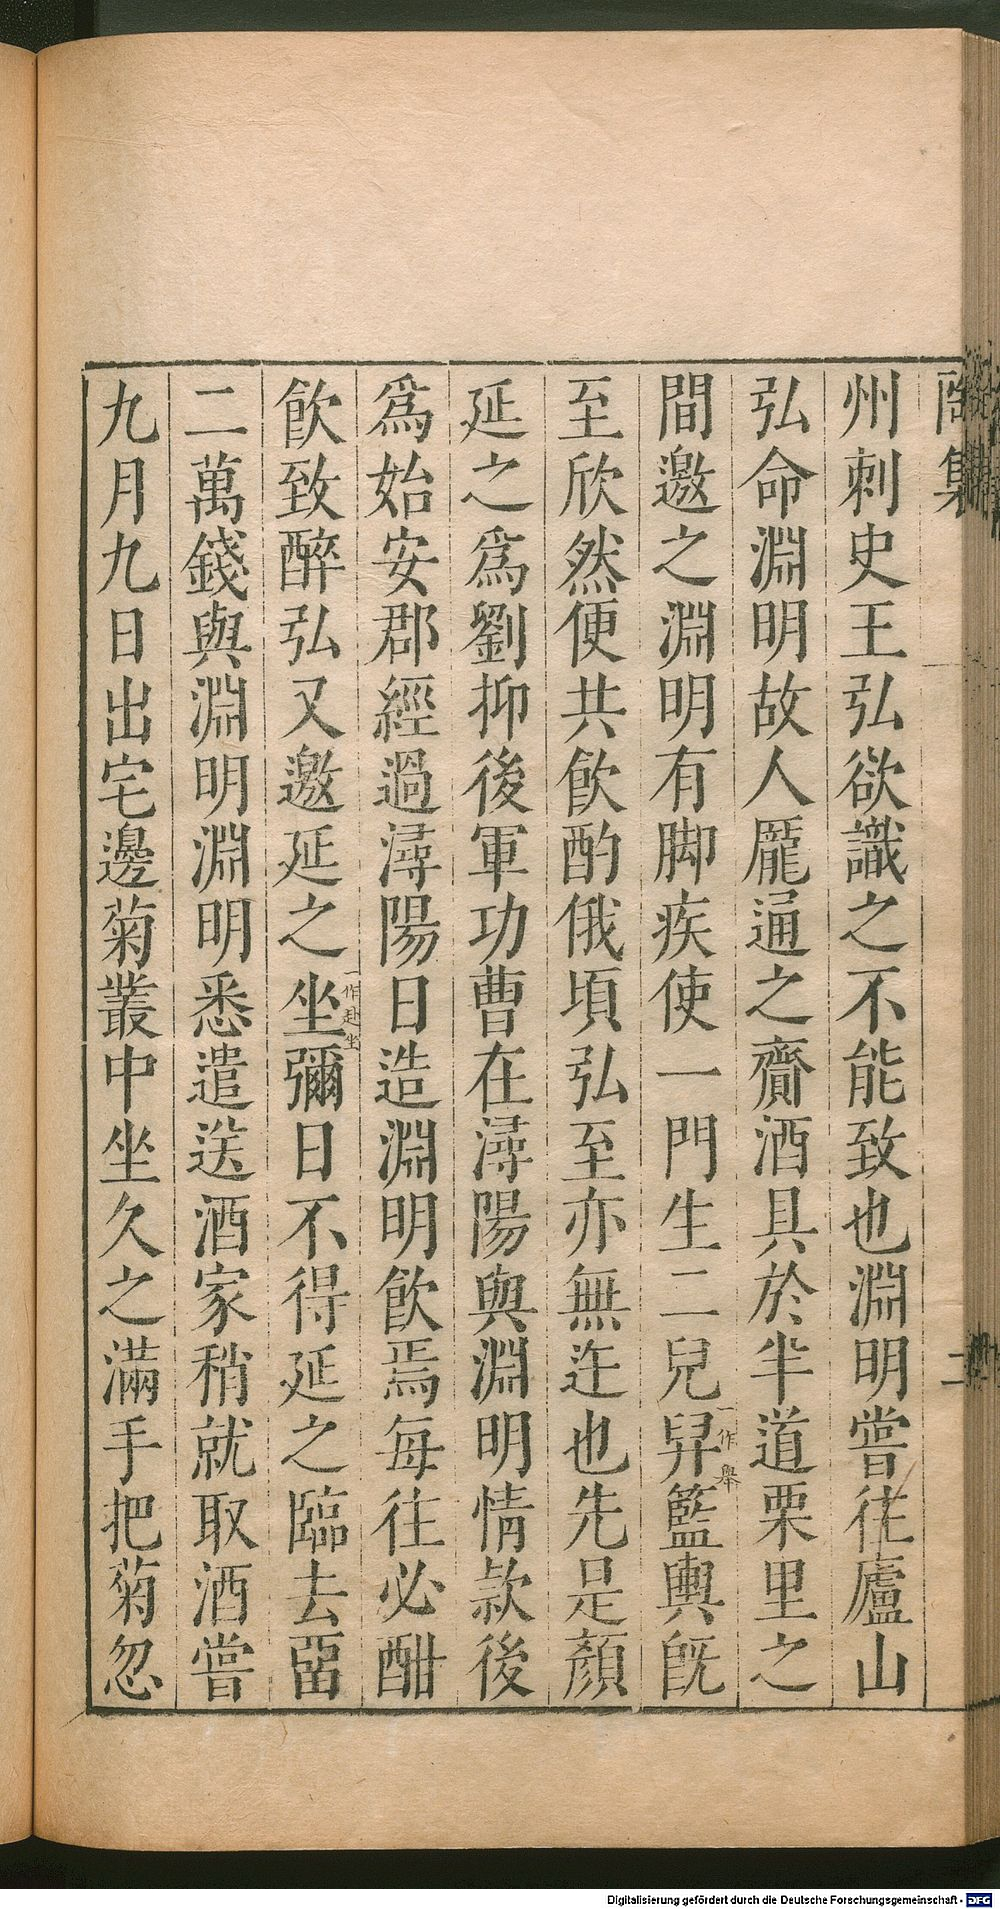 集
二
州刺史王弘欲識之不能致也淵明嘗往廬山
弘命淵明故人龐通之齎酒具於半道栗里之
間邀之淵明有脚疾使一門生二兒舁一作轝籃輿旣
至欣然便共飮酌俄頃弘至亦無迕也先是顏
延之爲劉抑後軍功曹在潯陽與淵明情款後
爲始安郡經過潯陽日造淵明飮焉每往必酣
飮致醉弘又邀延之坐一作赴坐彌日不得延之臨去留
二萬錢與淵明淵明悉遣送酒家稍就取酒嘗
九月九日出宅邊菊叢中坐久之滿手把菊忽
Digitalisierung gefördert durch die Deutsche Forschungsgemeinschaft - DFG